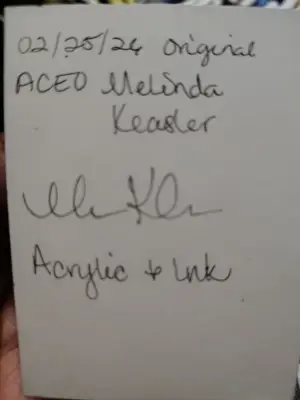 02/25/24 Original
ACEO Melinda
Keasler
Acrylic & Ink